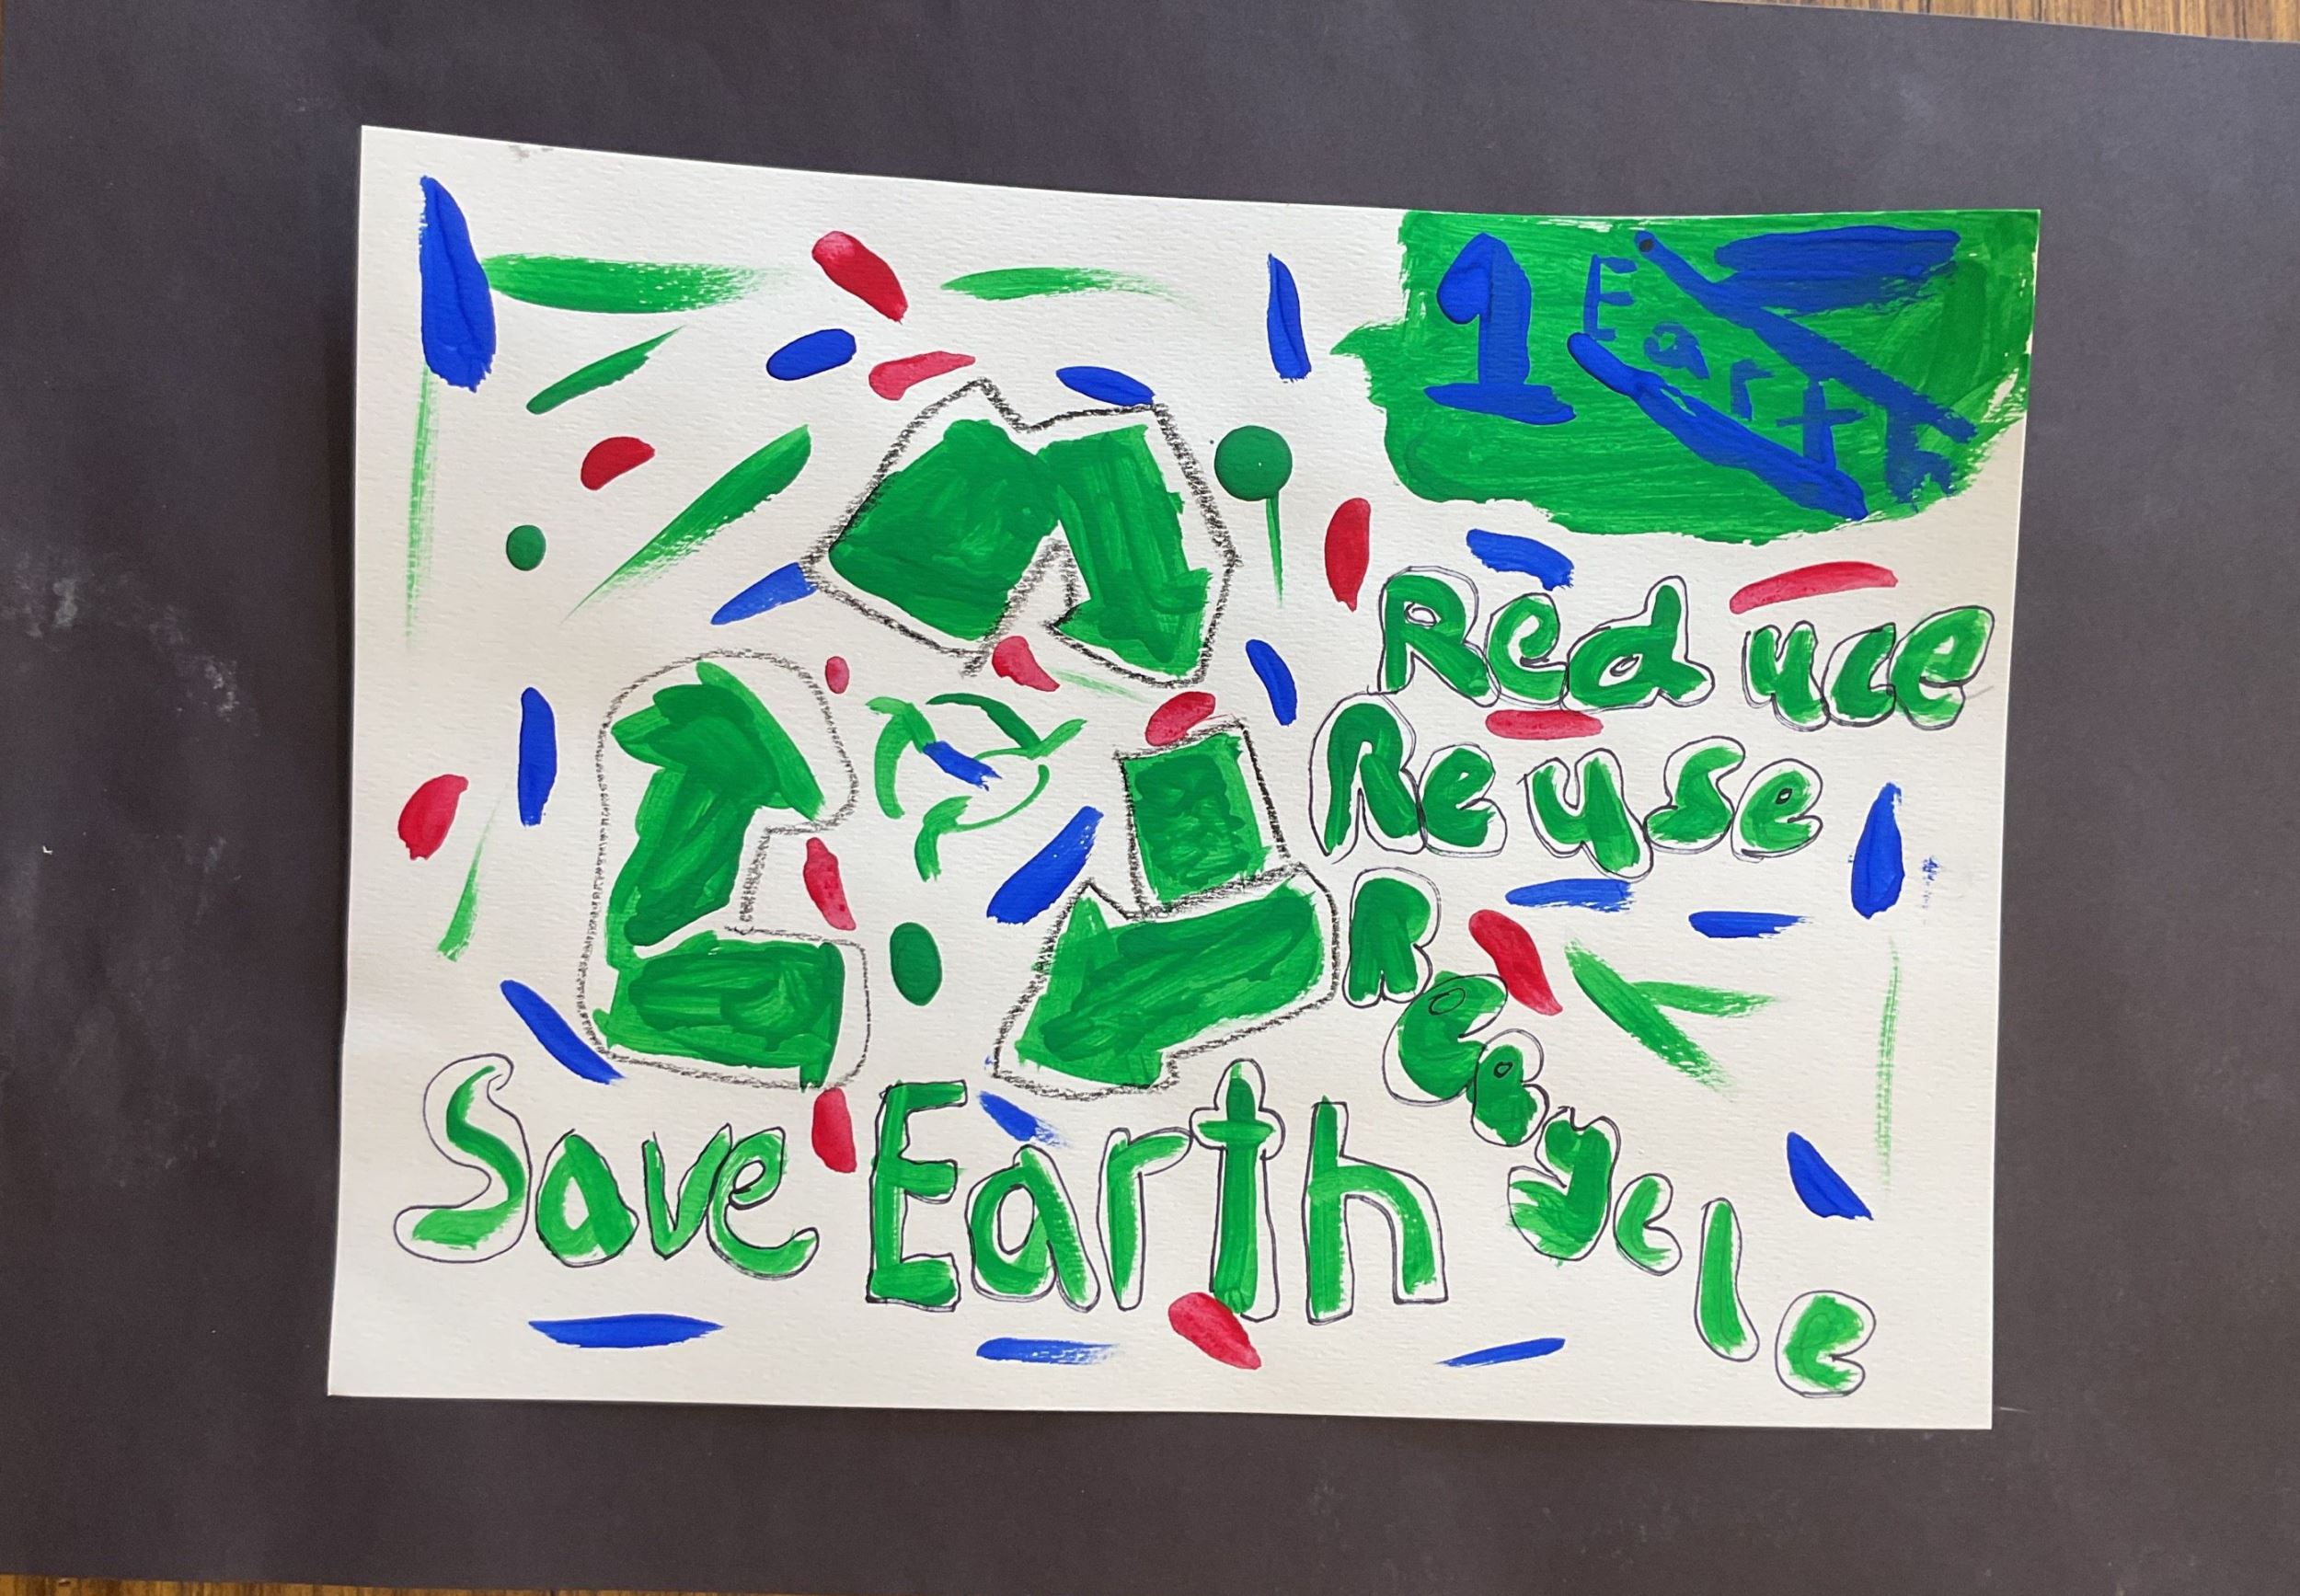 1 Earth
Reduce
Reuse
Recycle
Save Earth